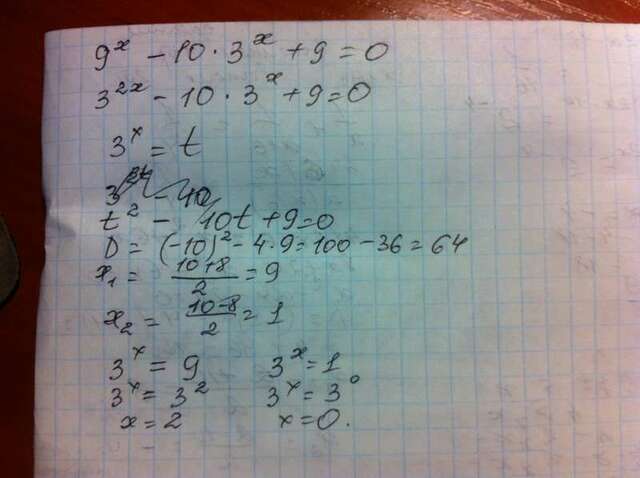 9^x − 10 · 3^x + 9 = 0
3^2x − 10 · 3^x + 9 = 0
3^x = t
t^2 − 10t + 9 = 0
D = (−10)^2 − 4·9 = 100 − 36 = 64
x_1 = (10+8)/2 = 9
x_2 = (10−8)/2 = 1
3^x = 9 3^x = 1
3^x = 3^2 3^x = 3^0
x = 2 x = 0.